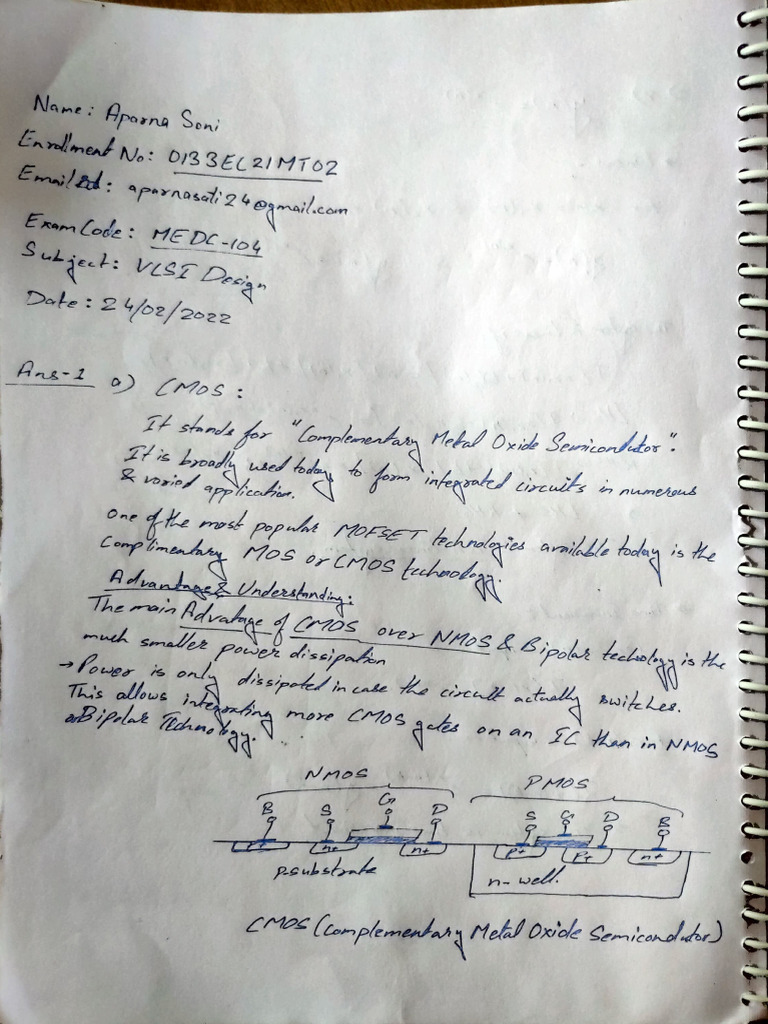 Name: Aparna Soni
Enrollment No: 0133EL21MT02
Email Id: aparnasati24@gmail.com
Exam Code: MEDC-104
Subject: VLSI Design
Date: 24/02/2022
Ans-1 a) CMOS:
It stands for "Complementary Metal Oxide Semicondutor".
It is broadly used today to form integrated circuits in numerous
& varied application.
One of the most popular MOFSET technologies available today is the
Complimentary MOS or CMOS technology.
Advantage & Understanding:
The main Advatage of CMOS over NMOS & Bipolar techology is the
much smaller power dissipation
→ Power is only dissipated in case the circuit actually switches.
This allows integrating more CMOS gates on an IC than in NMOS
or Bipolar Technology.
NMOS PMOS
B S G D S G D B
p+ n+ n+ p+ p+ n+
p-substrate n-well.
CMOS (Complementary Metal Oxide Semicondutor)